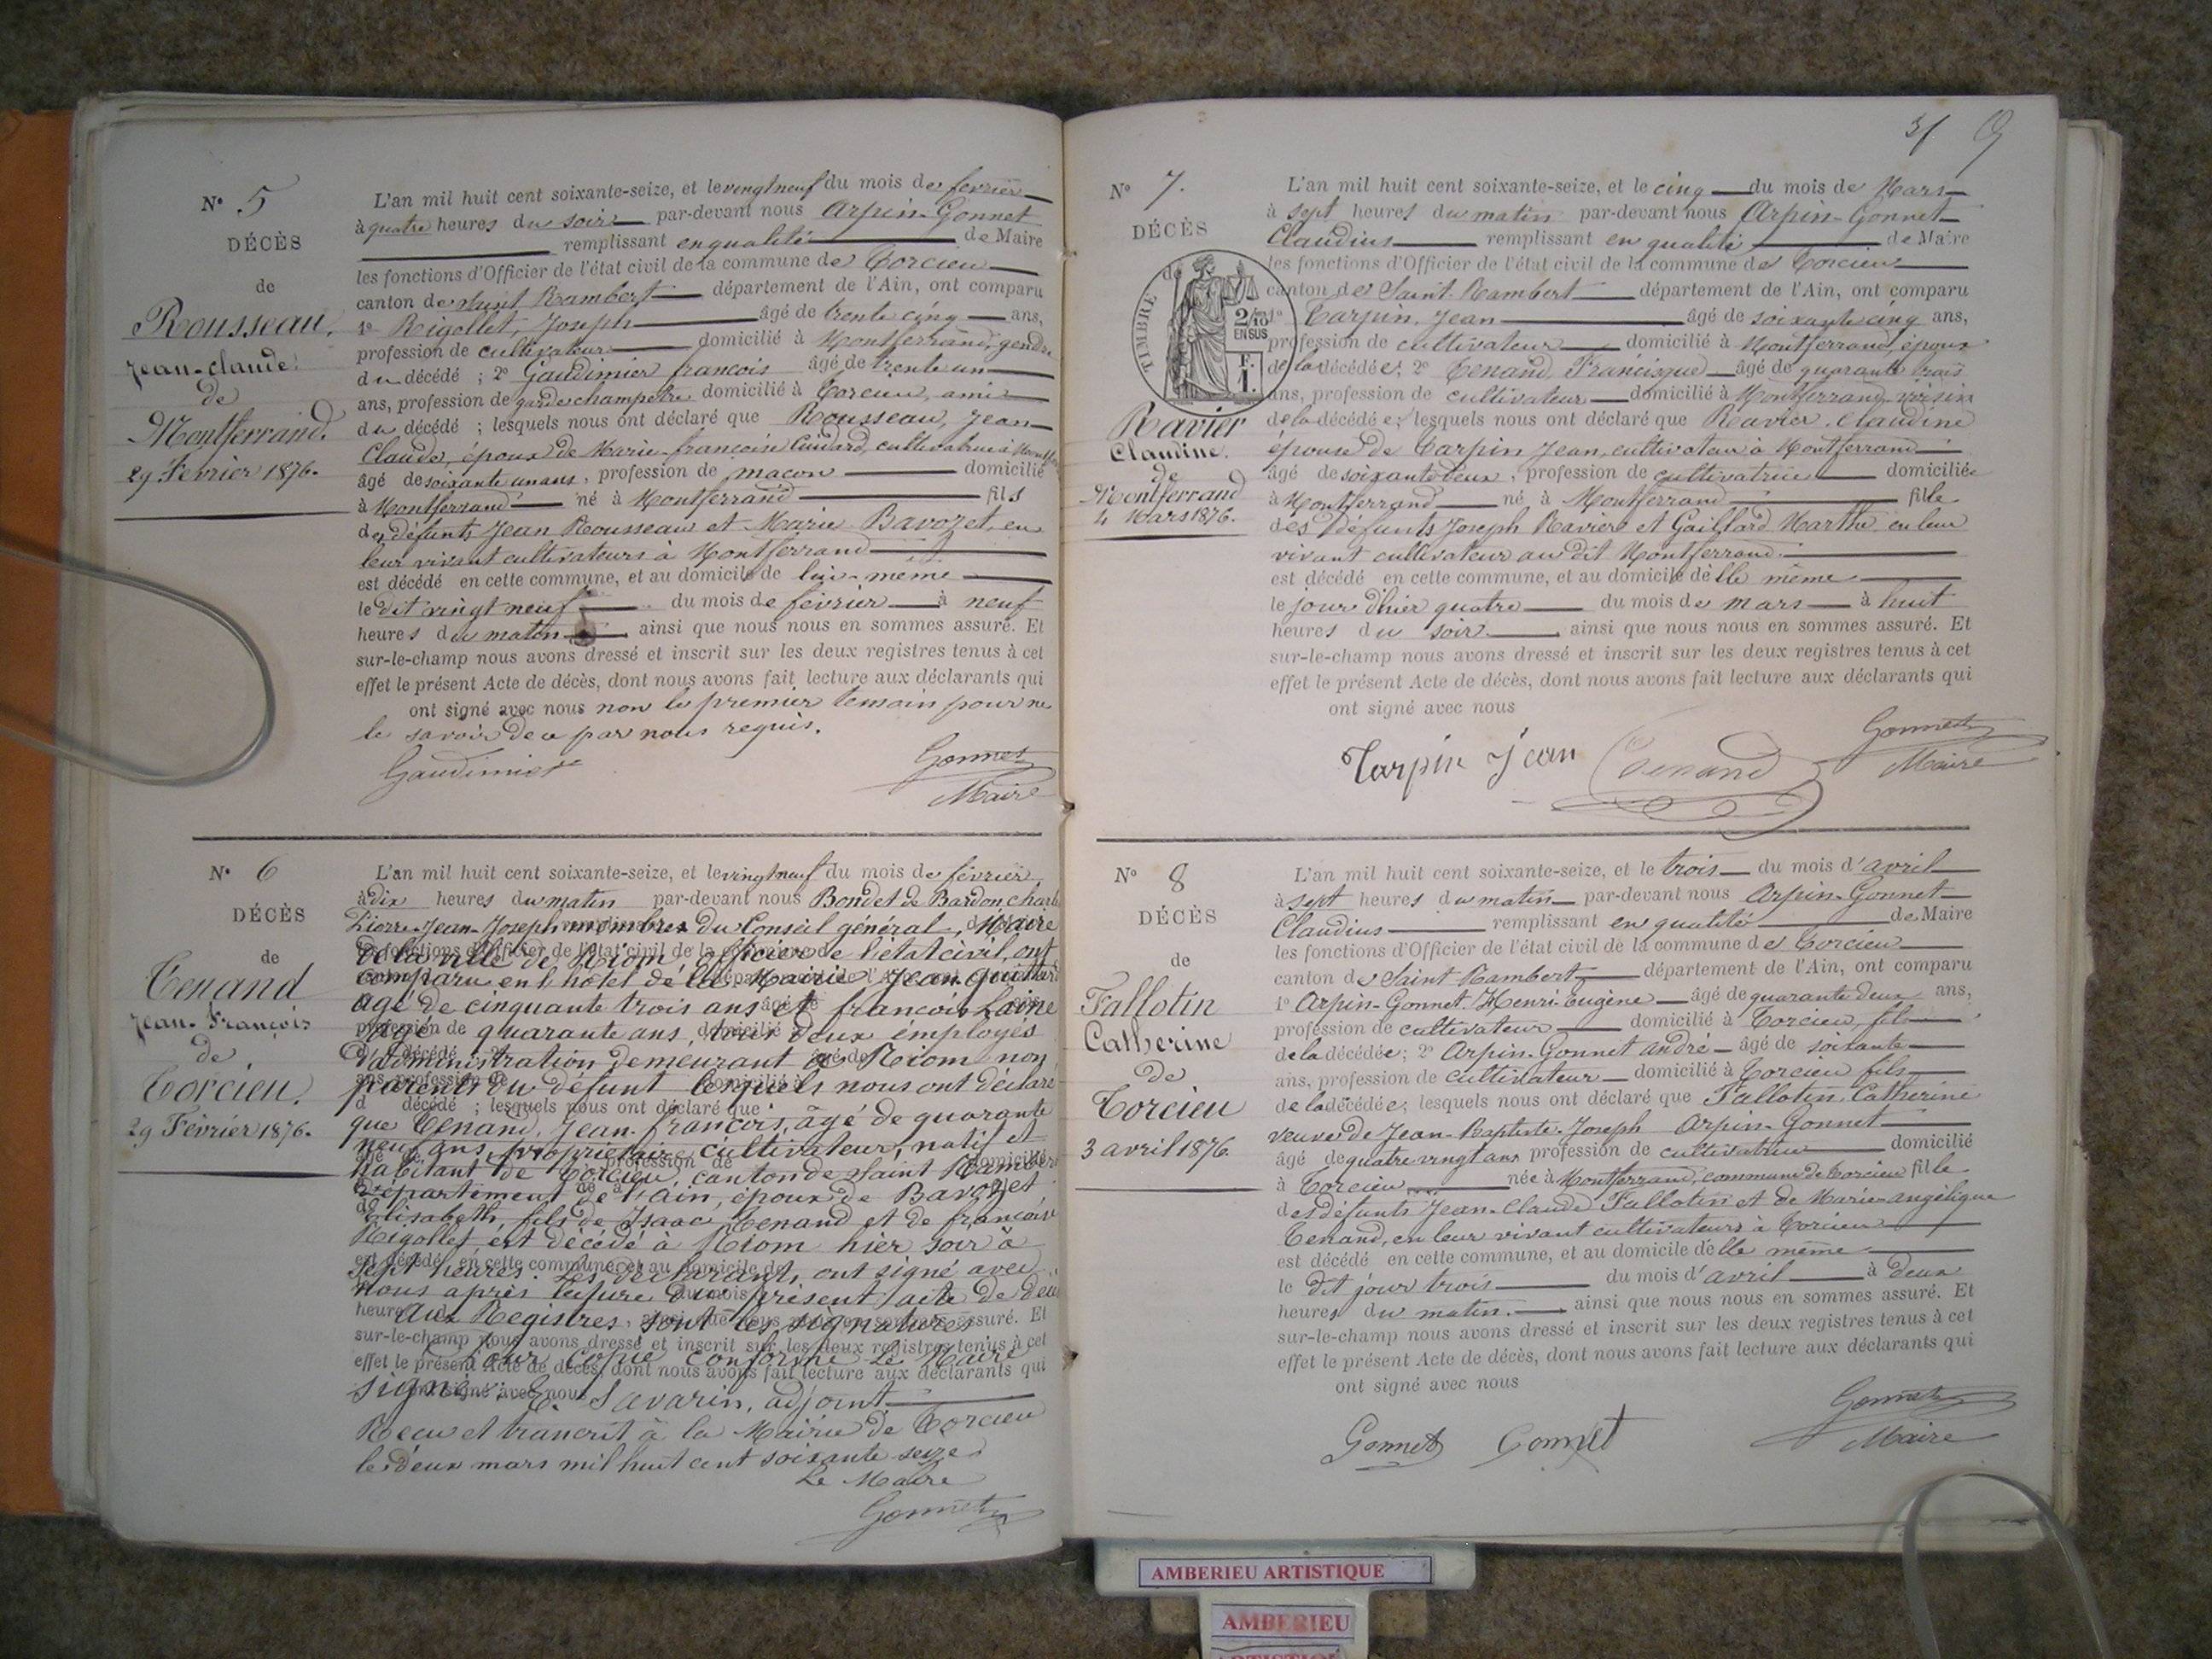 N° 5
DÉCÈS
de
Rousseau,
Jean-Claude
de
Montferrand.
29 Février 1876.
L'an mil huit cent soixante-seize, et le vingt neuf du mois de février
à quatre heures du soir par-devant nous Arpin-Gonnet
remplissant en qualité de Maire
les fonctions d'Officier de l'état civil de la commune de Torcieu
canton de Saint Rambert département de l'Ain, ont comparu
1° Rigollet, Joseph âgé de trente cinq ans,
profession de cultivateur domicilié à Montferrand, gendre
du décédé ; 2° Gaudimier françois âgé de trente un
ans, profession de garde champêtre domicilié à Torcieu, ami
du décédé ; lesquels nous ont déclaré que Rousseau, Jean-
Claude, époux de Marie-françoise cultivatrice à
âgé de soixante un ans, profession de maçon domicilié
à Montferrand né à Montferrand fils
des défunts Jean Rousseau et Marie Bavozet, en
leur vivant cultivateurs à Montferrand
est décédé en cette commune, et au domicile de lui-même
le dit vingt neuf du mois de février à neuf
heures du matin ainsi que nous nous en sommes assuré. Et
sur-le-champ nous avons dressé et inscrit sur les deux registres tenus à cet
effet le présent Acte de décès, dont nous avons fait lecture aux déclarants qui
ont signé avec nous non le premier temoin pour ne
le savoir de ce par nous requis.
Gaudimier
Gonnet
Maire
N° 6
DÉCÈS
de
Tenand
Jean-François
de
Torcieu.
29 Février 1876.
L'an mil huit cent soixante-seize, et le vingt neuf du mois de février
à dix heures du matin par-devant nous Bondet de Bardon, Charles
Pierre-Jean-Joseph membre du Conseil général, Maire
de la ville de Riom, officier de l'état civil, ont
comparu en l'hôtel de la Mairie Jean
âgé de cinquante trois ans et françois Laine
âgé de quarante ans, tous deux employés
d'administration demeurant à Riom non
parents du défunt lesquels nous ont déclaré
que Tenand, Jean-françois, âgé de quarante
neuf ans, propriétaire cultivateur, natif et
habitant de Torcieu, canton de Saint Rambert
Département de l'ain, époux de Bavozet
Elisabeth, fils de Isaac Tenand et de françoise
Rigollet, est décédé à Riom hier soir à
sept heures. Les déclarants ont signé avec
nous après lecture du présent acte de décès
aux Registres sont les signatures
Pour copie conforme Le Maire
signé: E. Savarin, adjoint
Recu et trancrit à la Mairie de Torcieu
le deux mars mil huit cent soixante seize
Le Maire
Gonnet
31 9
N° 7.
DÉCÈS
TIMBRE
2/10 EN SUS
F. 1.
Ravier
Claudine.
de
Montferrand
4 Mars 1876.
L'an mil huit cent soixante-seize, et le cinq du mois de Mars
à sept heures du matin par-devant nous Arpin-Gonnet
Claudius remplissant en qualité de Maire
les fonctions d'Officier de l'état civil de la commune de Torcieu
canton de Saint-Rambert département de l'Ain, ont comparu
1° Tarpin, Jean âgé de soixante cinq ans,
profession de cultivateur domicilié à Montferrand, époux
de la décédée; 2° Tenand, Françisque âgé de quarante trois
ans, profession de cultivateur domicilié à Montferrand voisin
de la décédée; lesquels nous ont déclaré que Ravier, Claudine
épouse de Tarpin Jean, cultivateur à Montferrand
âgé de soixante deux, profession de cultivatrice domiciliée
à Montferrand né à Montferrand fille
des défunts Joseph Ravier et Gaillard Marthe en leur
vivant cultivateur au dit Montferrand.
est décédé en cette commune, et au domicile d'elle même
le jour d'hier quatre du mois de mars à huit
heures du soir ainsi que nous nous en sommes assuré. Et
sur-le-champ nous avons dressé et inscrit sur les deux registres tenus à cet
effet le présent Acte de décès, dont nous avons fait lecture aux déclarants qui
ont signé avec nous
Tarpin Jean Tenand Gonnet
Maire
N° 8
DÉCÈS
de
Fallotin
Catherine
de
Torcieu
3 avril 1876.
L'an mil huit cent soixante-seize, et le trois du mois d'avril
à sept heures du matin par-devant nous Arpin-Gonnet
Claudius remplissant en qualité de Maire
les fonctions d'Officier de l'état civil de la commune de Torcieu
canton de Saint Rambert département de l'Ain, ont comparu
1° Arpin-Gonnet. Henri-Eugène âgé de quarante deux ans,
profession de cultivateur domicilié à Torcieu, fils
de la décédée; 2° Arpin-Gonnet andré âgé de soixante
ans, profession de cultivateur domicilié à Torcieu fils
de la décédée; lesquels nous ont déclaré que Fallotin Catherine
veuve de Jean-Baptiste-Joseph Arpin-Gonnet
âgé de quatre vingt ans profession de cultivatrice domicilié
à Torcieu née à Montferrand, commune de Torcieu fille
des défunts Jean-Claude Fallotin et de Marie-angélique
Tenand, en leur vivant cultivateurs à Torcieu
est décédé en cette commune, et au domicile d'elle même
le dit jour trois du mois d'avril à deux
heures du matin. ainsi que nous nous en sommes assuré. Et
sur-le-champ nous avons dressé et inscrit sur les deux registres tenus à cet
effet le présent Acte de décès, dont nous avons fait lecture aux déclarants qui
ont signé avec nous
Gonnet Gonnet Gonnet
Maire
AMBERIEU ARTISTIQUE
AMBERIEU
ARTISTIQUE